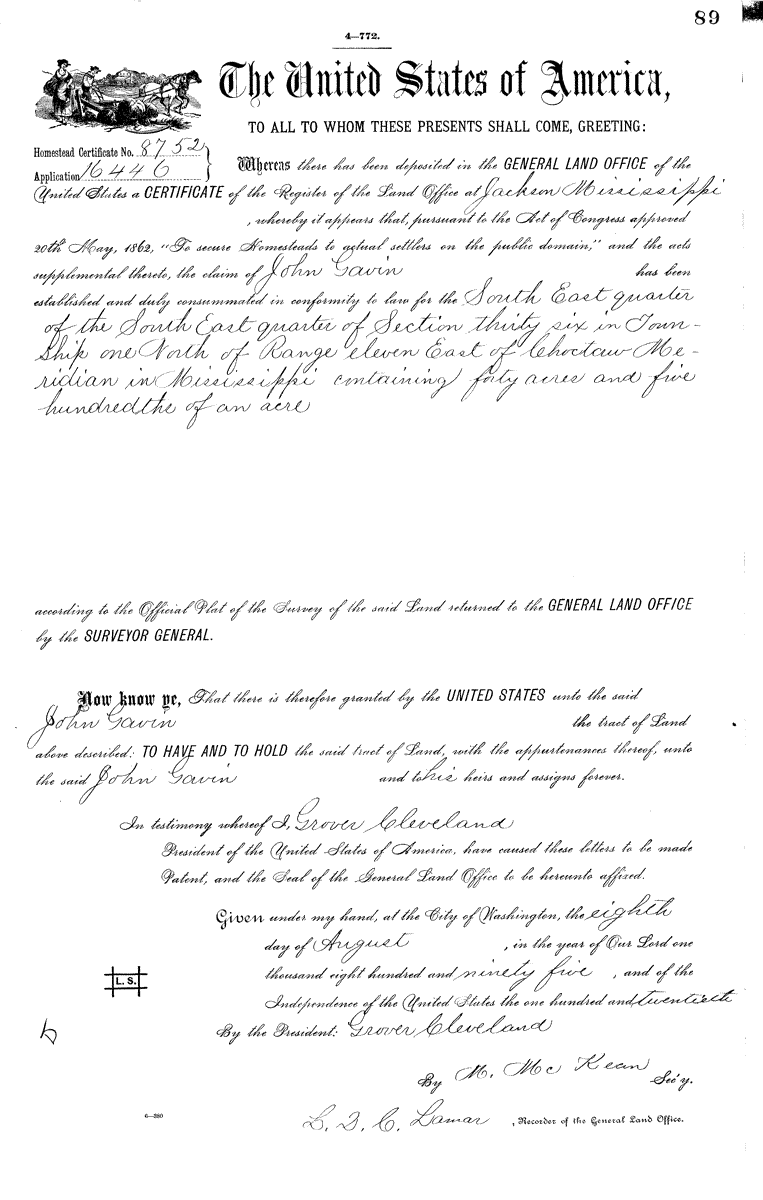 89
4—772.
The United States of America,
TO ALL TO WHOM THESE PRESENTS SHALL COME, GREETING:
Homestead Certificate No. 8752
Application 16446
Whereas there has been deposited in the GENERAL LAND OFFICE of the
United States a CERTIFICATE of the Register of the Land Office at Jackson Mississippi
, whereby it appears that, pursuant to the Act of Congress approved
20th May, 1862, "To secure Homesteads to actual settlers on the public domain," and the acts
supplemental thereto, the claim of John Gavin has been
established and duly consummated in conformity to law for the South East quarter
of the South East quarter of Section thirty six in Town-
ship one North of Range eleven East of Choctaw Me-
ridian in Mississippi containing forty acres and five
hundredths of an acre
according to the Official Plat of the Survey of the said Land returned to the GENERAL LAND OFFICE
by the SURVEYOR GENERAL.
Now know ye, That there is therefore granted by the UNITED STATES unto the said
John Gavin the tract of Land
above described: TO HAVE AND TO HOLD the said tract of Land, with the appurtenances thereof, unto
the said John Gavin and to his heirs and assigns forever.
In testimony whereof I, Grover Cleveland
President of the United States of America, have caused these letters to be made
Patent, and the Seal of the General Land Office to be hereunto affixed.
Given under my hand, at the City of Washington, the eighth
day of August , in the year of Our Lord one
thousand eight hundred and ninety five , and of the
Independence of the United States the one hundred and twentieth
L. S.
By the President: Grover Cleveland
By M. McKean Sec'y.
6—380
L. Q. C. Lamar , Recorder of the General Land Office.